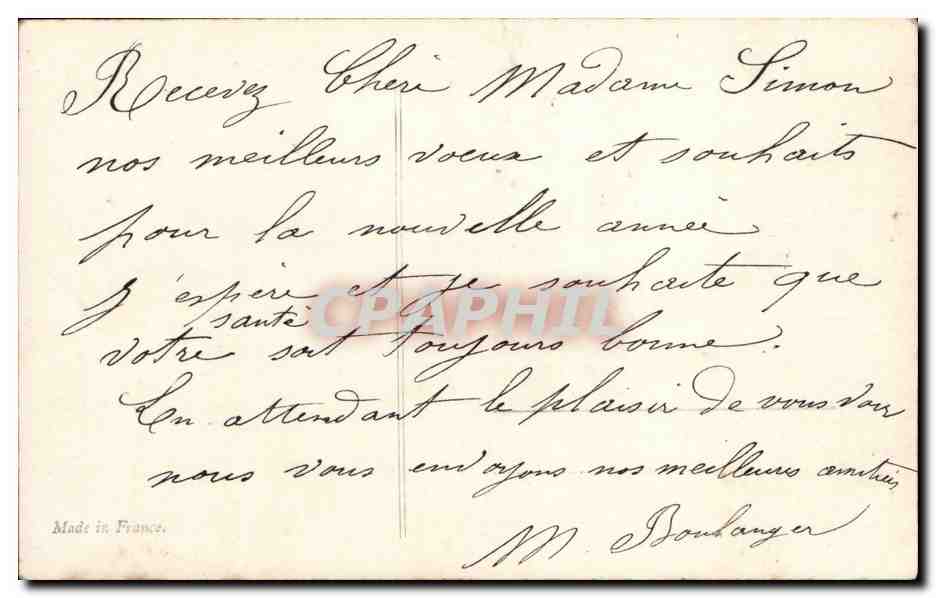 Recevez Chéri Madame Simon
nos meilleurs voeux et souhaits
pour la nouvelle année
J'espère et je souhaite que
santé
votre soit toujours bonne.
En attendant le plaisir de vous voir
nous vous envoyons nos meilleures amitiés
M. Boulanger
Made in France.
CPAPHIL